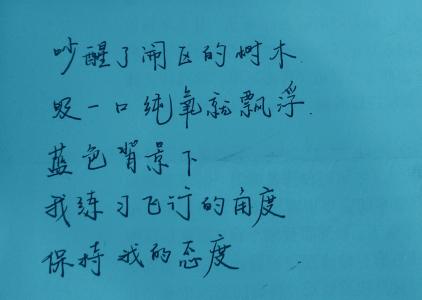 吵醒了闹区的树木.
吸一口纯氧就飘浮.
蓝色背景下
我练习飞行的角度
保持我的态度